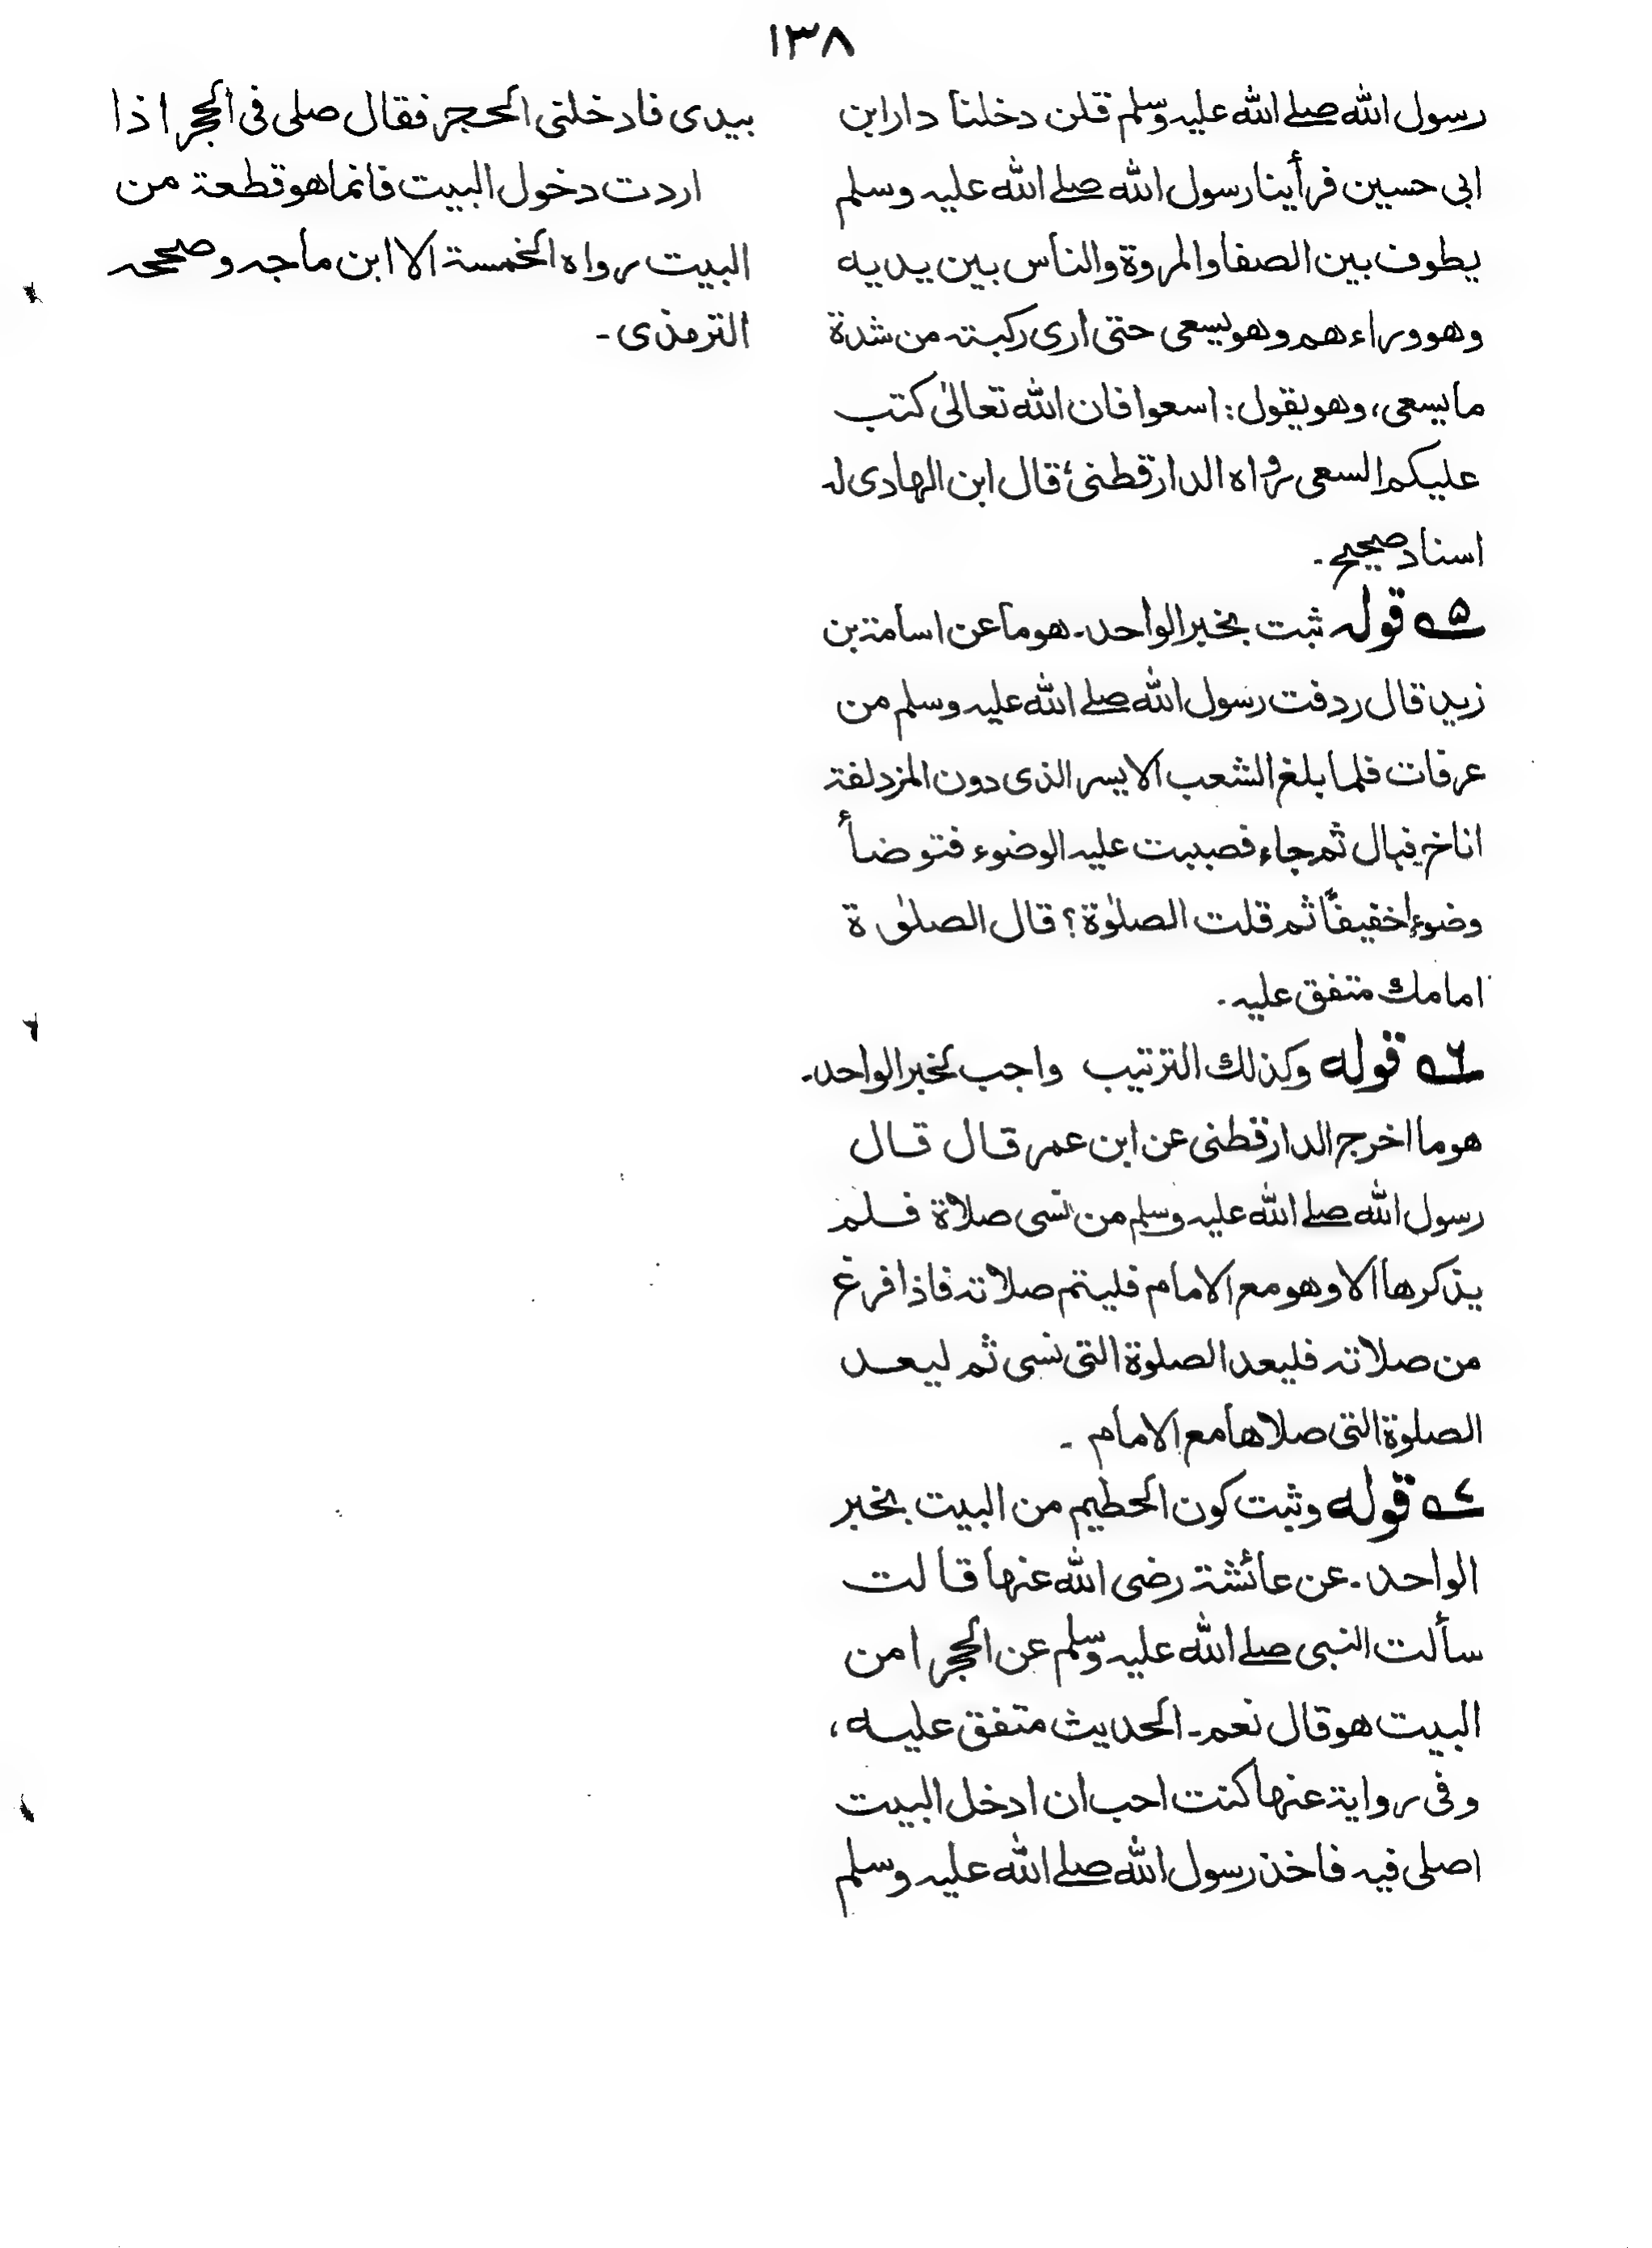 ١٣٨
رسول الله صلے الله عليه وسلم قلن دخلنا دار ابن
ابى حسين فرأينا رسول الله صلے الله عليه وسلم
يطوف بين الصفا والمروة والناس بين يديه
وهو وراءهم وهو يسعى حتى ارى ركبته من شدة
ما يسعى، وهو يقول: اسعوا فان الله تعالىٰ كتب
عليكم السعى رواه الدارقطنى، قال ابن الهادى له
اسناد صحيح ـ
۵ے قوله ثبت بخبر الواحد ـ هو ما عن اسامة بن
زيد قال ردفت رسول الله صلے الله عليه وسلم من
عرفات فلما بلغ الشعب الايسر الذى دون المزدلفة
اناخ فبال ثم جاء فصببت عليه الوضوء فتوضأ
وضوءا خفيفًا ثم قلت الصلوٰة؟ قال الصلوٰة
امامك متفق عليه ـ
۶ے قوله وكذلك الترتيب واجب لخبر الواحد ـ
هو ما اخرج الدارقطنى عن ابن عمر قال قال
رسول الله صلے الله عليه وسلم من نسى صلاة فلم
يذكرها الا وهو مع الامام فليتم صلاته فاذا فرغ
من صلاته فليعد الصلوة التى نسى ثم ليعد
الصلوة التى صلاها مع الامام ـ
۷ے قوله وثبت كون الحطيم من البيت بخبر
الواحد ـ عن عائشة رضى الله عنها قالت
سألت النبى صلے الله عليه وسلم عن الحجر امن
البيت هو قال نعم ـ الحديث متفق عليه،
وفى رواية عنها كنت احب ان ادخل البيت
اصلى فيه فاخذ رسول الله صلے الله عليه وسلم
بيدى فادخلنى الحجر فقال صلى فى الحجر اذا
اردت دخول البيت فانما هو قطعة من
البيت رواه الخمسة الا ابن ماجه وصححه
الترمذى ـ